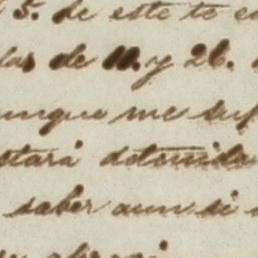 5. de este te
las de 10. y 26.
unque me
stará detenida
saber aun si